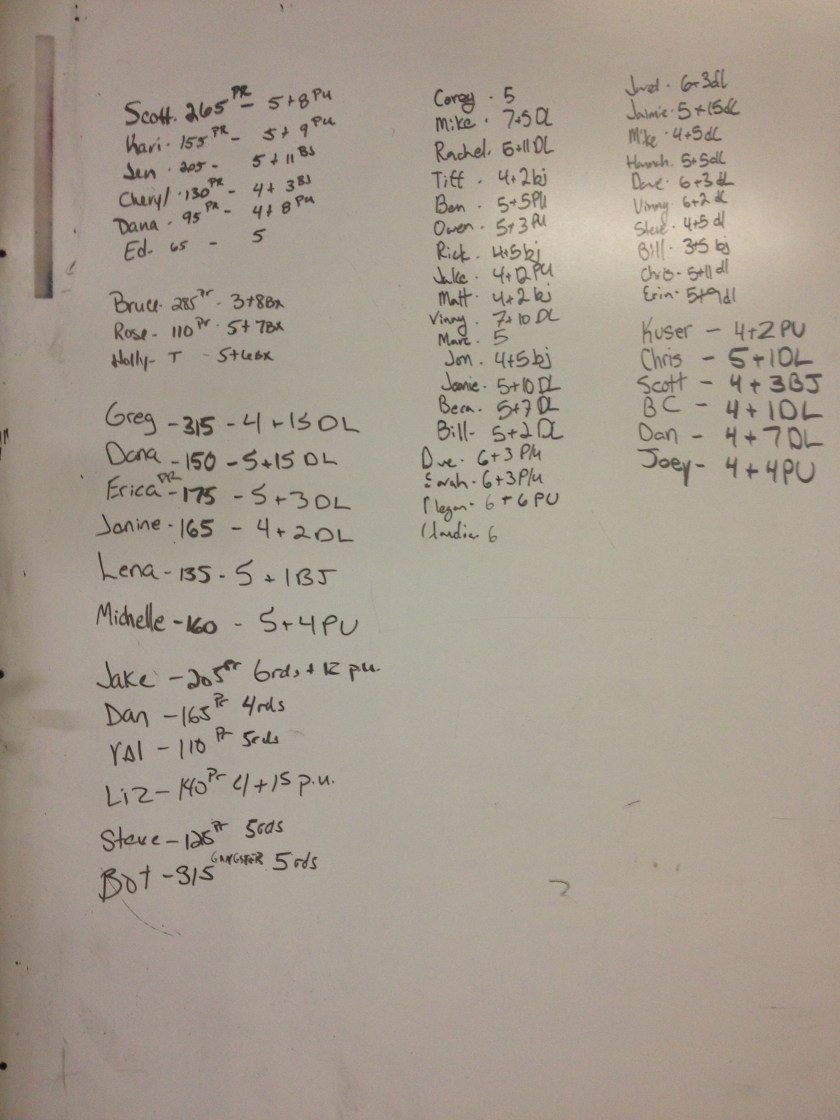 Scott. 265 PR - 5+8 PU
Kari. 155 PR - 5+9 PU
Jen. 205 - 5+11 BJ
Cheryl. 130 PR - 4+3 BJ
Dana. 95 PR - 4+8 PU
Ed- 65 - 5
Bruce. 285 Pr - 3+8Bx
Rose. 110 Pr - 5+7Bx
Holly- T - 5+6Bx
Greg -315 - 4+15 DL
Dana -150 - 5+15 DL
Erica PR -175 - 5+3 DL
Janine -165 - 4+2 DL
Lena -135 - 5+1 BJ
Michelle -160 - 5+4 PU
Jake -205 Pr 6rds + 12 p.u.
Dan -165 Pr 4rds
VAl -110 Pr 5rds
Liz -140 Pr 4+15 p.u.
Steve -125 Pr 5rds
Bot -315 GANGSTER 5rds
Corey . 5
Mike . 7+5 DL
Rachel. 5+11 DL
Tiff . 4+2 bj
Ben . 5+5 PU
Owen . 5+3 PU
Rick. 4+5 bj
Jake . 4+12 PU
Matt . 4+2 bj
Vinny . 7+10 DL
Marc . 5
Jon . 4+5 bj
Jamie . 5+10 DL
Bern . 5+7 DL
Bill- 5+2 DL
6+3 P/u
Sarah . 6+3 P/u
Megan . 6+6 PU
Claudia 6
Jared . 6+3dl
Jaimie . 5+15dl
Mike . 4+5dl
Hannah. 5+5dl
Dave . 6+3 dl
Vinny 6+2 dl
Steve . 4+5 dl
Bill . 3+5 bj
Chris - 5+11 dl
Erin - 5+9 dl
Kuser - 4+2 PU
Chris - 5+1 DL
Scott - 4+3 BJ
BC - 4+1 DL
Dan - 4+7 DL
Joey - 4+4 PU